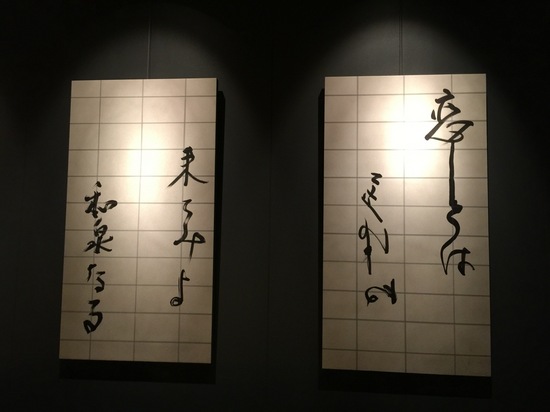 恋しくは
来てみよ
和泉なる